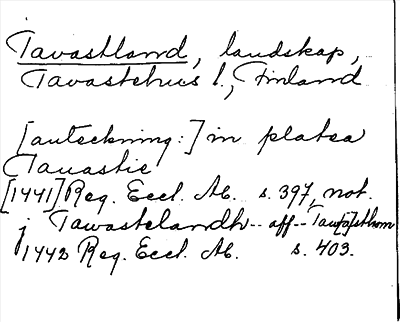 Tavastland, landskap,
Tavastehus l., Finland
[anteckning:] in platea
Tauastie
[1441] Reg. Eccl. Ab. s. 397, not.
j Tawastelandh -- aff --
1442 Reg. Eccl. Ab. s. 403.